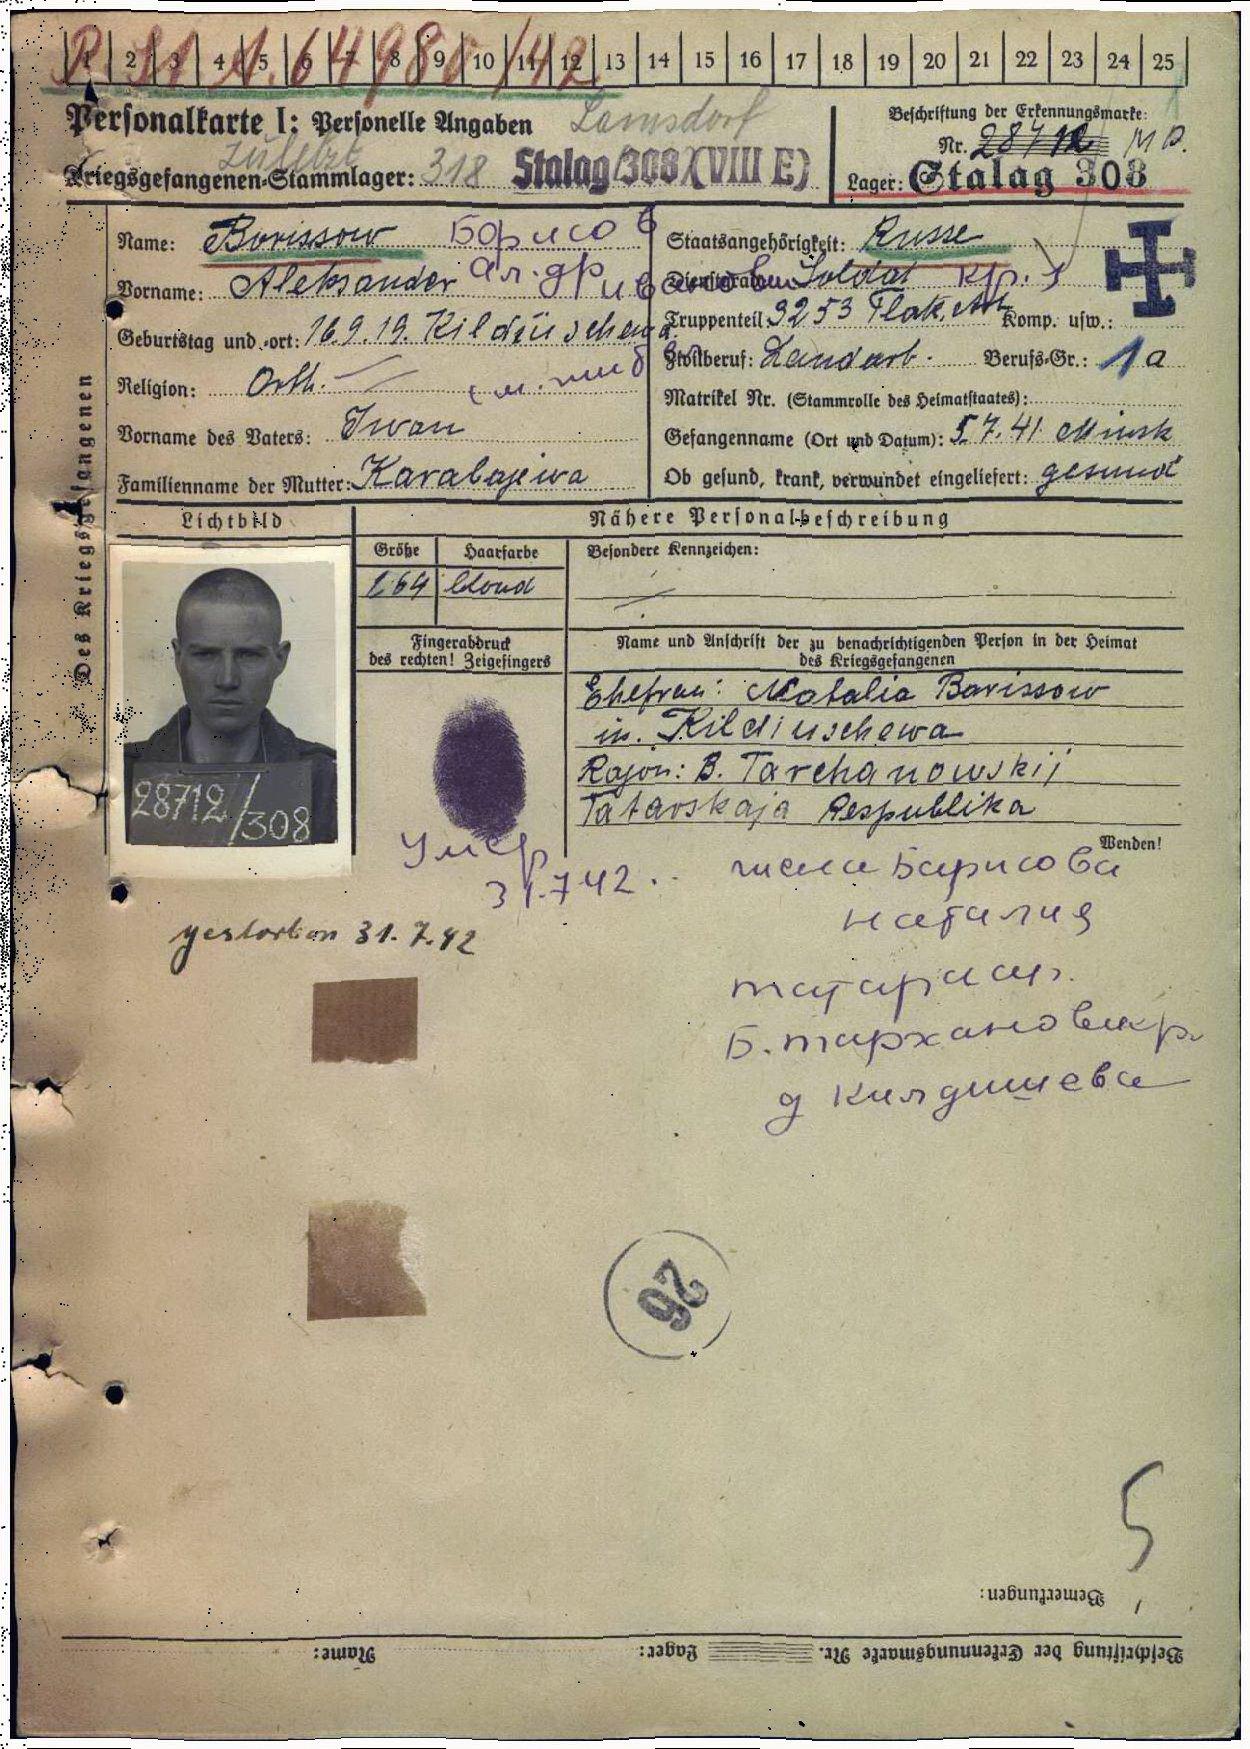 R. 31 A. 64980/42
1 2 3 4 5 6 7 8 9 10 11 12 13 14 15 16 17 18 19 20 21 22 23 24 25
Personalkarte I: Personelle Angaben Lamsdorf
zuletzt
Kriegsgefangenen-Stammlager: 318 Stalag 308 (VIII E)
Beschriftung der Erkennungsmarke:
Nr. 28712
Lager: Stalag 308
Des Kriegsgefangenen
Name: Borissow Борисов
Vorname: Aleksander Ал-др Иванович
Geburtstag und -ort: 16.9.19. Kildüschewa
Religion: Orth. —
Vorname des Vaters: Iwan
Familienname der Mutter: Karabajewa
Staatsangehörigkeit: Russe
Dienstgrad: Soldat кр.
Truppenteil: 9253 Flak. Art Komp. usw.:
Zivilberuf: Landarb. Berufs-Gr.: 1a
Matrikel Nr. (Stammrolle des Heimatstaates):
Gefangenname (Ort und Datum): 5.7.41 Minsk
Ob gesund, krank, verwundet eingeliefert: gesund
Lichtbild
Nähere Personalbeschreibung
Größe Haarfarbe Besondere Kennzeichen:
1.64 blond —
Fingerabdruck
des rechten! Zeigefingers
Name und Anschrift der zu benachrichtigenden Person in der Heimat
des Kriegsgefangenen
Ehefrau: Natalia Borissow
in. Kildiuschewa
Rajon: B. Tarchanowskij
Tatarskaja Respublika
28712/308
Wenden!
Умер
31.7.42.
gestorben 31.7.42
жена Барисова
Наталия
Б. Тархановск р.
д Килдишева
26
5
Bemerkungen:
Beschriftung der Erkennungsmarke Nr. Lager: Name: